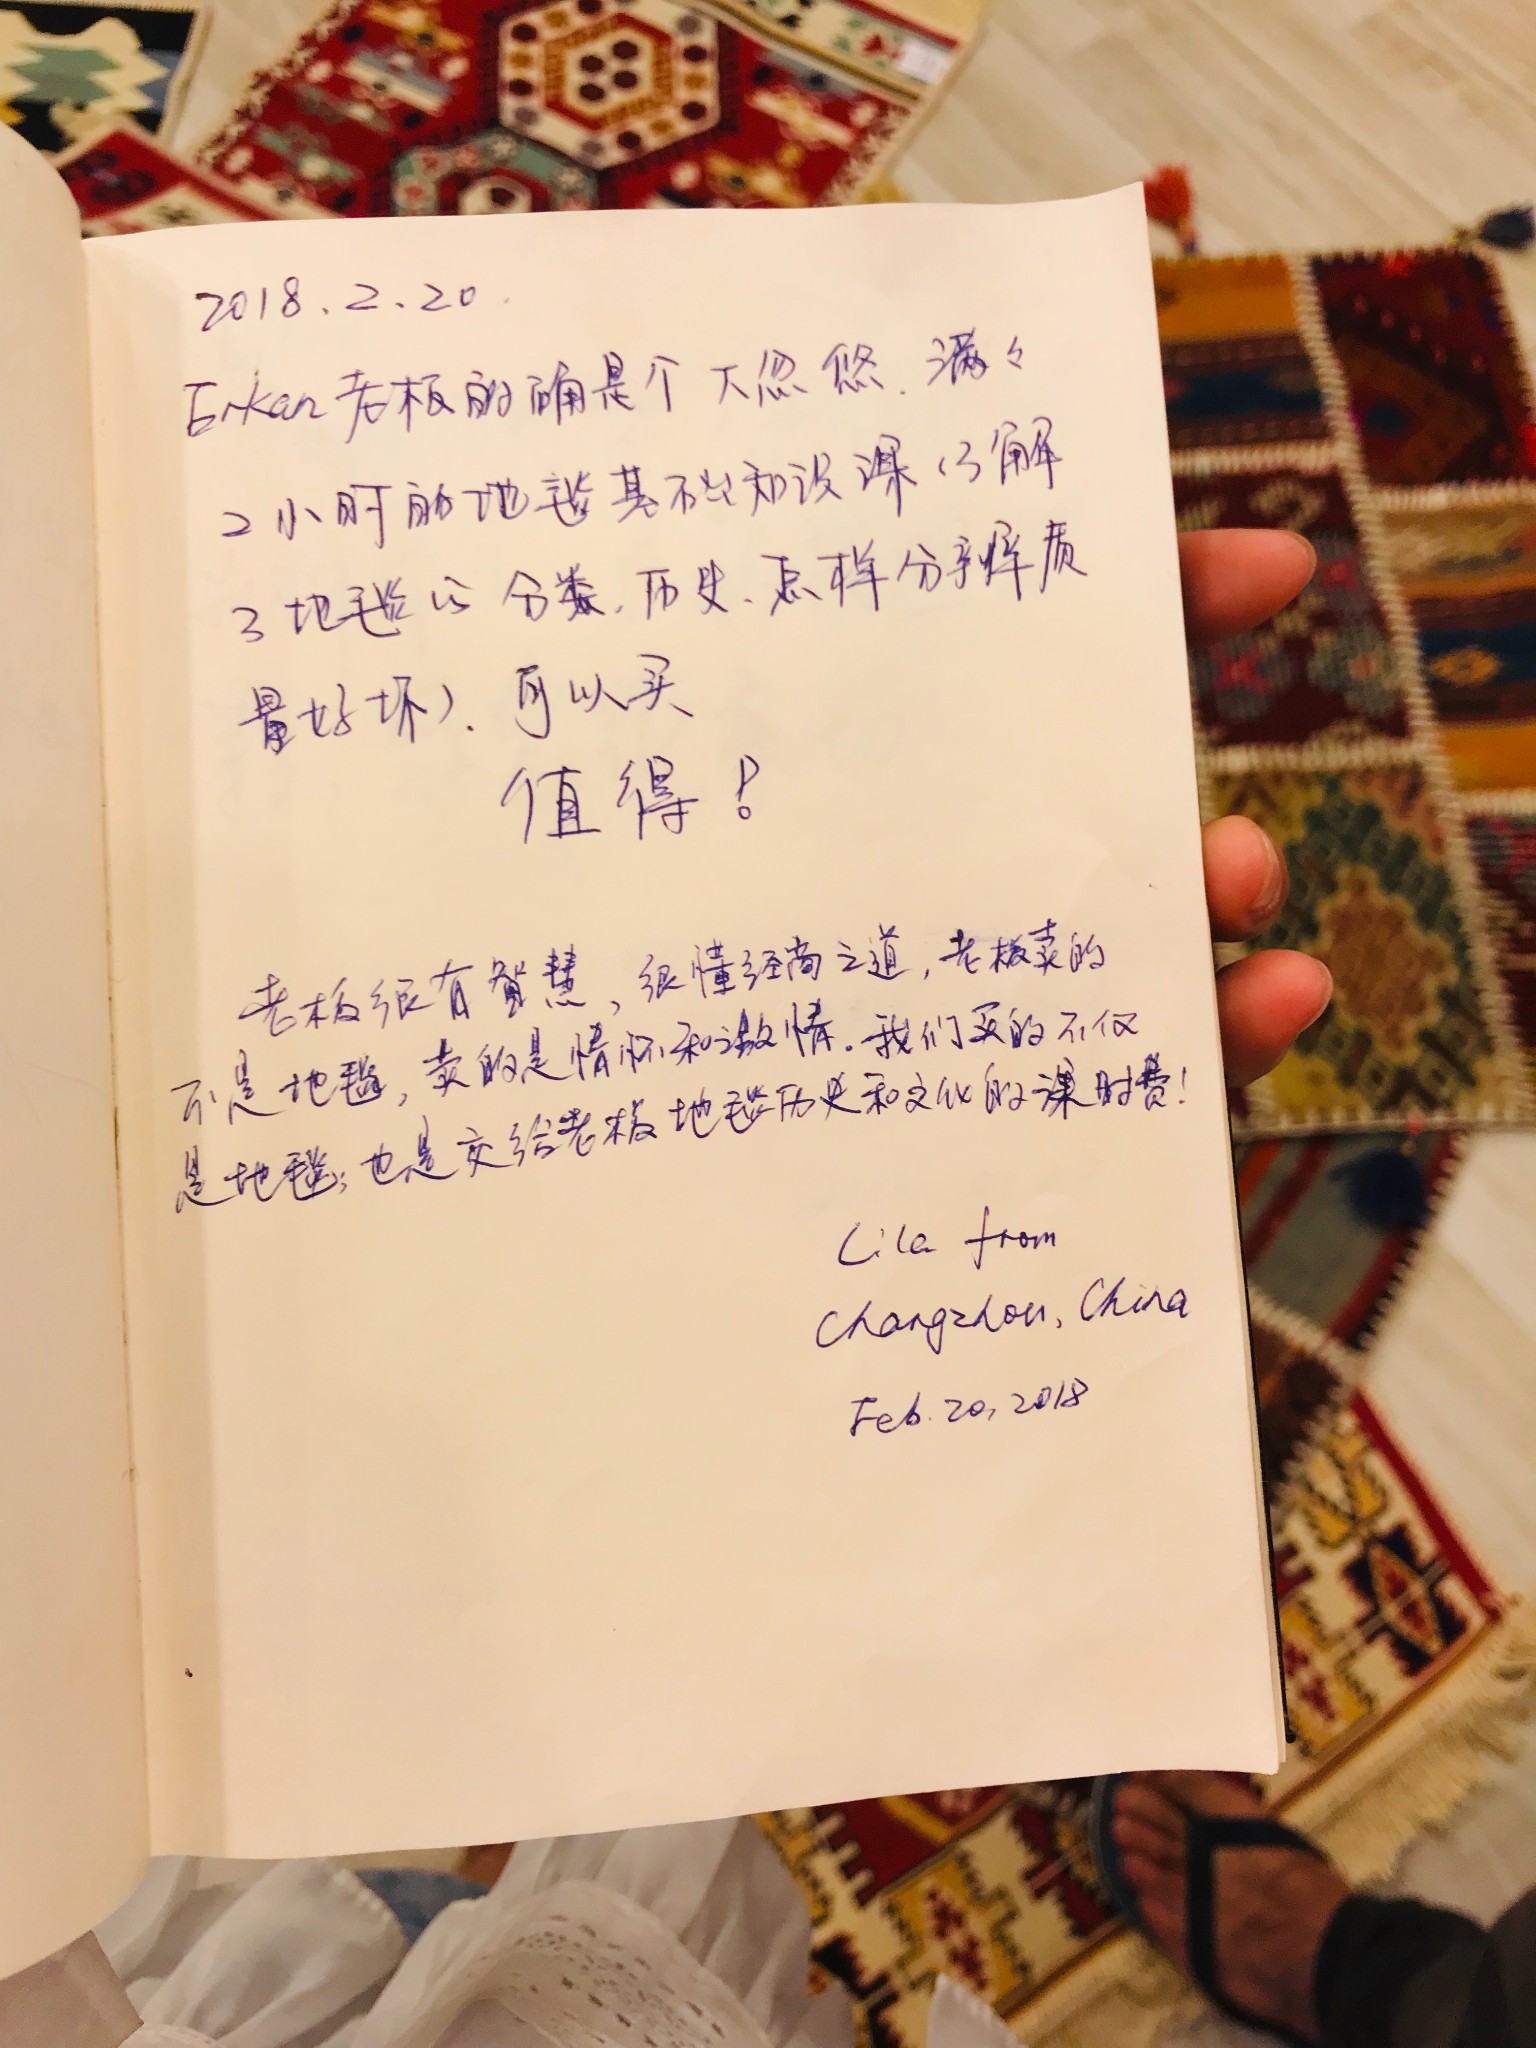 2018.2.20.
Erkan老板的确是个大忽悠.满々
2小时的地毯基础知识课(了解
了地毯的分类.历史.怎样分辨质
量好坏).可以买
值得!
老板很有智慧,很懂经商之道,老板卖的
不是地毯,卖的是情怀和激情.我们买的不仅
是地毯;也是交给老板地毯历史和文化的课时费!
Lila from
Changzhou, China
Feb. 20, 2018